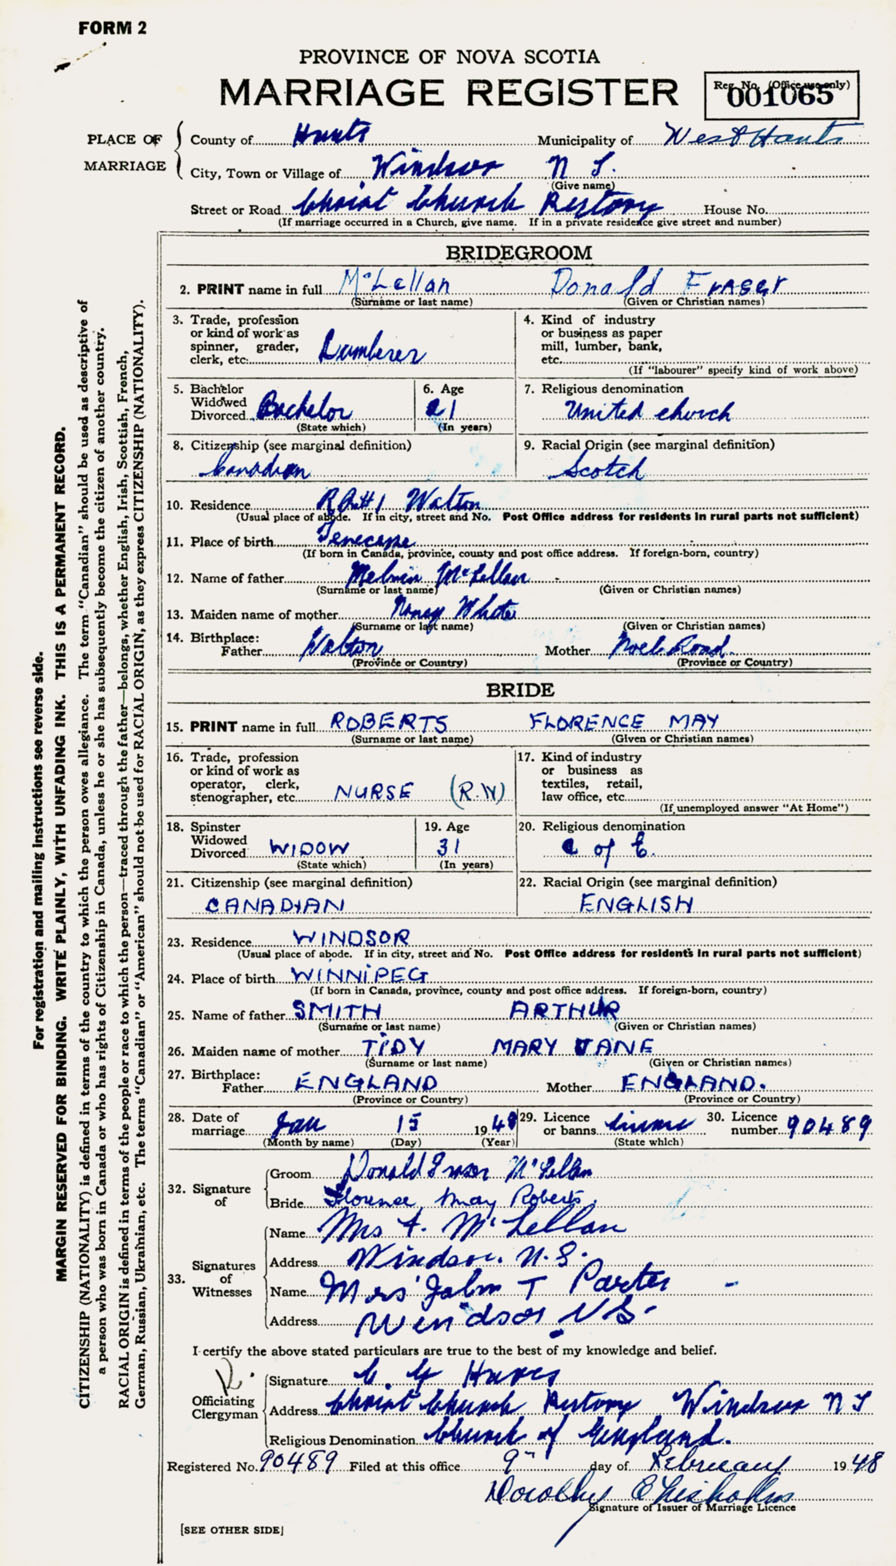 FORM 2
PROVINCE OF NOVA SCOTIA
MARRIAGE REGISTER
Reg. No. (Office use only)
001065
PLACE OF MARRIAGE
County of Hants Municipality of West Hants
City, Town or Village of Windsor N S.
(Give name)
Street or Road Christ Church Rectory House No.
(If marriage occurred in a Church, give name. If in a private residence give street and number)
BRIDEGROOM
2. PRINT name in full McLellan Donald Fraser
(Surname or last name) (Given or Christian names)
3. Trade, profession or kind of work as spinner, grader, clerk, etc. Lumberer
4. Kind of industry or business as paper mill, lumber, bank, etc.
(If "labourer" specify kind of work above)
5. Bachelor Widowed Divorced Bachelor
(State which)
6. Age 21
(In years)
7. Religious denomination
United church
8. Citizenship (see marginal definition)
Canadian
9. Racial Origin (see marginal definition)
Scotch
10. Residence Walton
(Usual place of abode. If in city, street and No. Post Office address for residents in rural parts not sufficient)
11. Place of birth Tenecape
(If born in Canada, province, county and post office address. If foreign-born, country)
12. Name of father Melvin McLellan
(Surname or last name) (Given or Christian names)
13. Maiden name of mother Nancy White
(Surname or last name) (Given or Christian names)
14. Birthplace:
Father Walton Mother Noel Road.
(Province or Country) (Province or Country)
BRIDE
15. PRINT name in full ROBERTS FLORENCE MAY
(Surname or last name) (Given or Christian names)
16. Trade, profession or kind of work as operator, clerk, stenographer, etc. NURSE (R.N)
17. Kind of industry or business as textiles, retail, law office, etc.
(If unemployed answer "At Home")
18. Spinster Widowed Divorced WIDOW
(State which)
19. Age 31
(In years)
20. Religious denomination
C of E.
21. Citizenship (see marginal definition)
CANADIAN
22. Racial Origin (see marginal definition)
ENGLISH
23. Residence WINDSOR
(Usual place of abode. If in city, street and No. Post Office address for residents in rural parts not sufficient)
24. Place of birth WINNIPEG
(If born in Canada, province, county and post office address. If foreign-born, country)
25. Name of father SMITH ARTHUR
(Surname or last name) (Given or Christian names)
26. Maiden name of mother TIDY MARY JANE
(Surname or last name) (Given or Christian names)
27. Birthplace:
Father ENGLAND Mother ENGLAND.
(Province or Country) (Province or Country)
28. Date of marriage Jan 15 1948
(Month by name) (Day) (Year)
29. Licence or banns license
(State which)
30. Licence number 90489
32. Signature of
Groom Donald Fraser McLellan
Bride Florence May Roberts
33. Signatures of Witnesses
Name Mrs A. McLellan
Address Windsor. N.S.
Name Mrs John T Porter
Address Windsor N.S.
I certify the above stated particulars are true to the best of my knowledge and belief.
Officiating Clergyman
Signature
Address Christ Church Rectory Windsor N S
Religious Denomination Church of England.
Registered No. 90489 Filed at this office 9" day of February 1948
Dorothy Chisholm
Signature of Issuer of Marriage Licence
[SEE OTHER SIDE]
For registration and mailing instructions see reverse side.
MARGIN RESERVED FOR BINDING. WRITE PLAINLY, WITH UNFADING INK. THIS IS A PERMANENT RECORD.
CITIZENSHIP (NATIONALITY) is defined in terms of the country to which the person owes allegiance. The term "Canadian" should be used as descriptive of
a person who was born in Canada or who has rights of Citizenship in Canada, unless he or she has subsequently become the citizen of another country.
RACIAL ORIGIN is defined in terms of the people or race to which the person—traced through the father—belongs, whether English, Irish, Scottish, French,
German, Russian, Ukrainian, etc. The terms "Canadian" or "American" should not be used for RACIAL ORIGIN, as they express CITIZENSHIP (NATIONALITY).